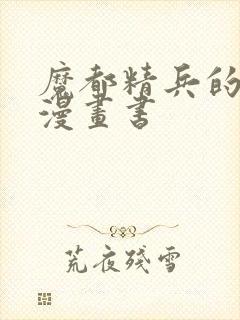 魔都精兵的
漫畫書
荒夜殘雪